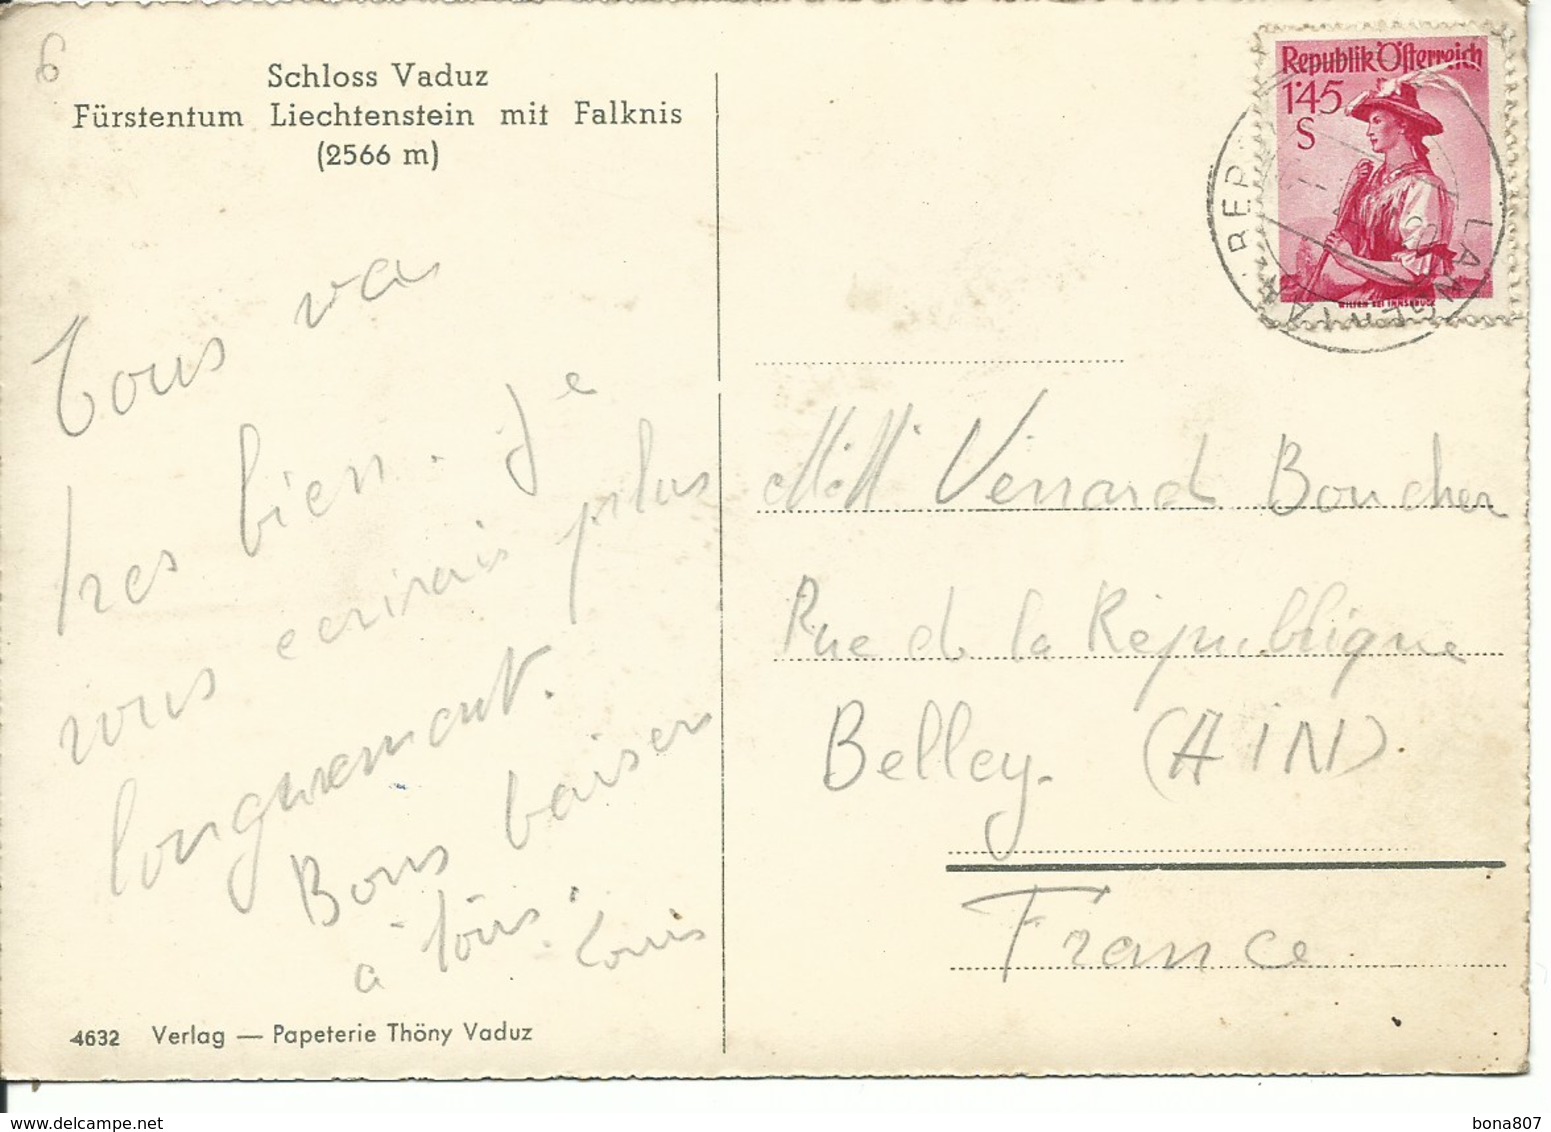 6
Schloss Vaduz
Fürstentum Liechtenstein mit Falknis
(2566 m)
Republik Österreich
1·45
S
WILTEN BEI INNSBRUCK
LANGEN A
Tous va
tres bien. Je
vous ecrirais plus
longuement.
Bons baisers
à tous. Louis
M.M. Venard Boucher
Rue de la République
Belley. (AIN)
France
4632 Verlag — Papeterie Thöny Vaduz
www.delcampe.net
bona807